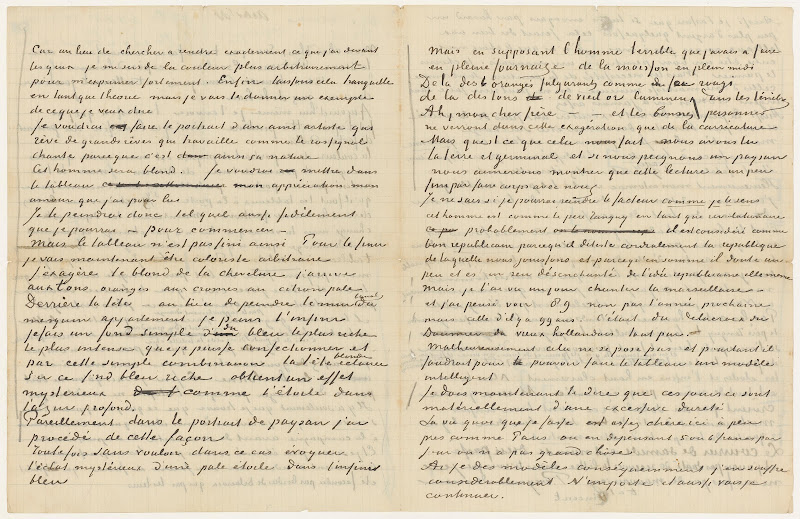 Car au lieu de chercher a rendre exactement ce que j'ai devant
les yeux je me sers de la couleur plus arbitrairement
pour m'exprimer fortement. Enfin laissons cela tranquille
en tant que theorie mais je vais te donner un exemple
de ce que je veux dire
Je voudrais faire le portrait d'un ami artiste qui
rêve de grands rêves qui travaille comme le rossignol
chante parceque c'est ainsi sa nature
Cet homme sera blond. Je voudrais mettre dans
le tableau mon appréciation mon
amour que j'ai pour lui
Je le peindrai donc tel quel aussi fidèlement
que je pourrai – pour commencer –
Mais le tableau n'est pas fini ainsi Pour le finir
je vais maintenant être coloriste arbitraire
J'exagère le blond de la chevelure j'arrive
aux tons orangés aux chromes au citron pâle
Derrière la tête – au lieu de peindre le mur banal du
mesquin appartement je peins l'infini
je fais un fond simple du bleu le plus riche
le plus intense que je puisse confectionner et
par cette simple combinaison la tête blonde éclairée
sur ce fond bleu riche obtient un effet
mysterieux comme l'étoile dans
l'azur profond.
Pareillement dans le portrait de paysan j'ai
procédé de cette façon
Toutefois sans vouloir dans ce cas évoquer
l'éclat mystérieux d'une pale étoile dans l'infini
bleu
Mais en supposant l'homme terrible que j'avais a faire
en pleine fournaise de la moisson en plein midi
De la des orangés fulgurants comme du fer rougi
de la des tons de vieil or lumineux dans les ténèbres
Ah, mon cher frère – – et les bonnes personnes
ne verront dans cette exagération que de la carricature
Mais qu'est ce que cela nous fait nous avons lu
la terre et germinal et si nous peignons un paysan
nous aimerions montrer que cette lecture a un peu
fini par faire corps avec nous
Je ne sais si je pourrai peindre le facteur comme je le sens
cet homme est comme le père Tanguy en tant que revolutionaire
probablement il est considéré comme
bon republicain parcequ'il déteste cordialement la republique
de laquelle nous jouissons et parcequ'en somme il doute un
peu et est un peu désenchanté de l'idée republicaine elle même
mais je l'ai vu un jour chanter la marseillaise –
et j'ai pensé voir 89 non pas l'année prochaine
mais celle d'il y a 99 ans. C'était du Delacroix du
Daumier du vieux hollandais tout pur. –
Malheureusement cela ne se pose pas et pourtant il
faudrait pour pouvoir faire le tableau un modèle
intelligent
Je dois maintenant te dire que ces jours ci sont
matériellement d'une excessive dureté
La vie quoi que je fasse est assez chère ici a peu
près comme Paris ou en dépensant 5 ou 6 francs par
jour on n'a pas grand chose
Ai je des modèles conséquemment j'en souffre
considerablement N'importe et aussi vais je
continuer.